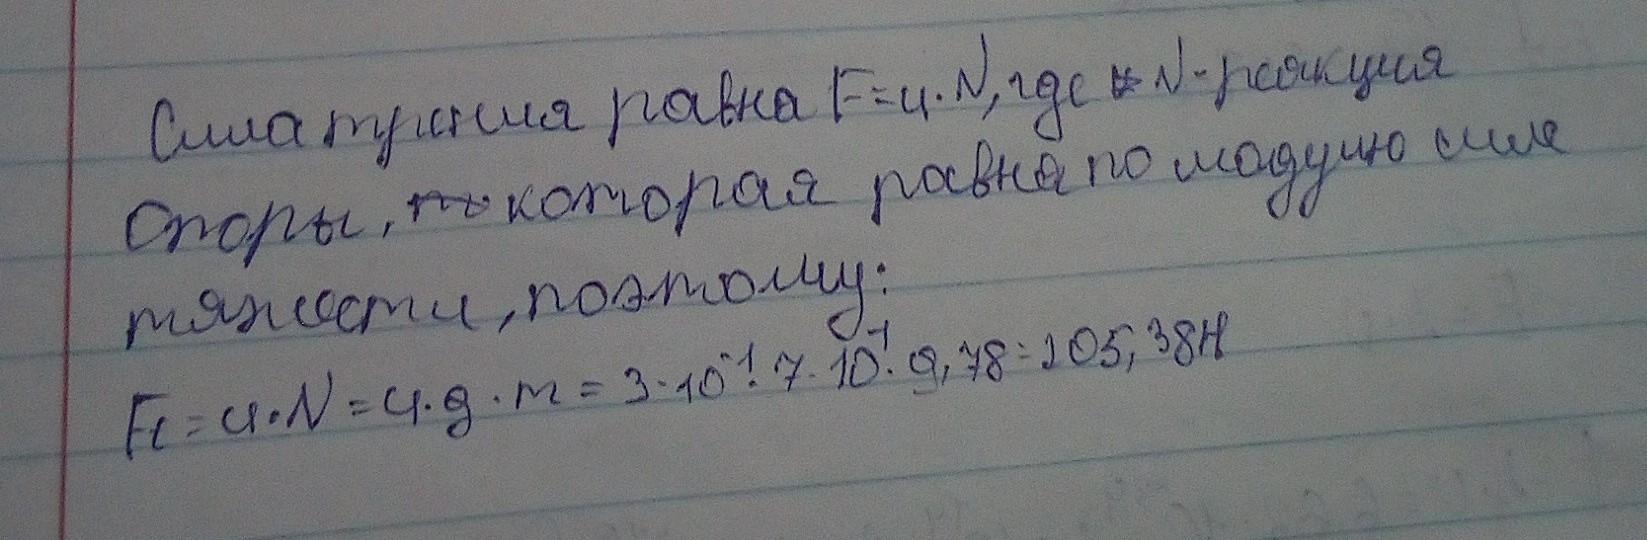 Сила трения равна F=μ·N, где N-реакция
опоры, которая равна по модулю силе
тяжести, поэтому:
F₁=μ·N=μ·g·m=3·10⁻¹·7·10¹·9,78=205,38Н